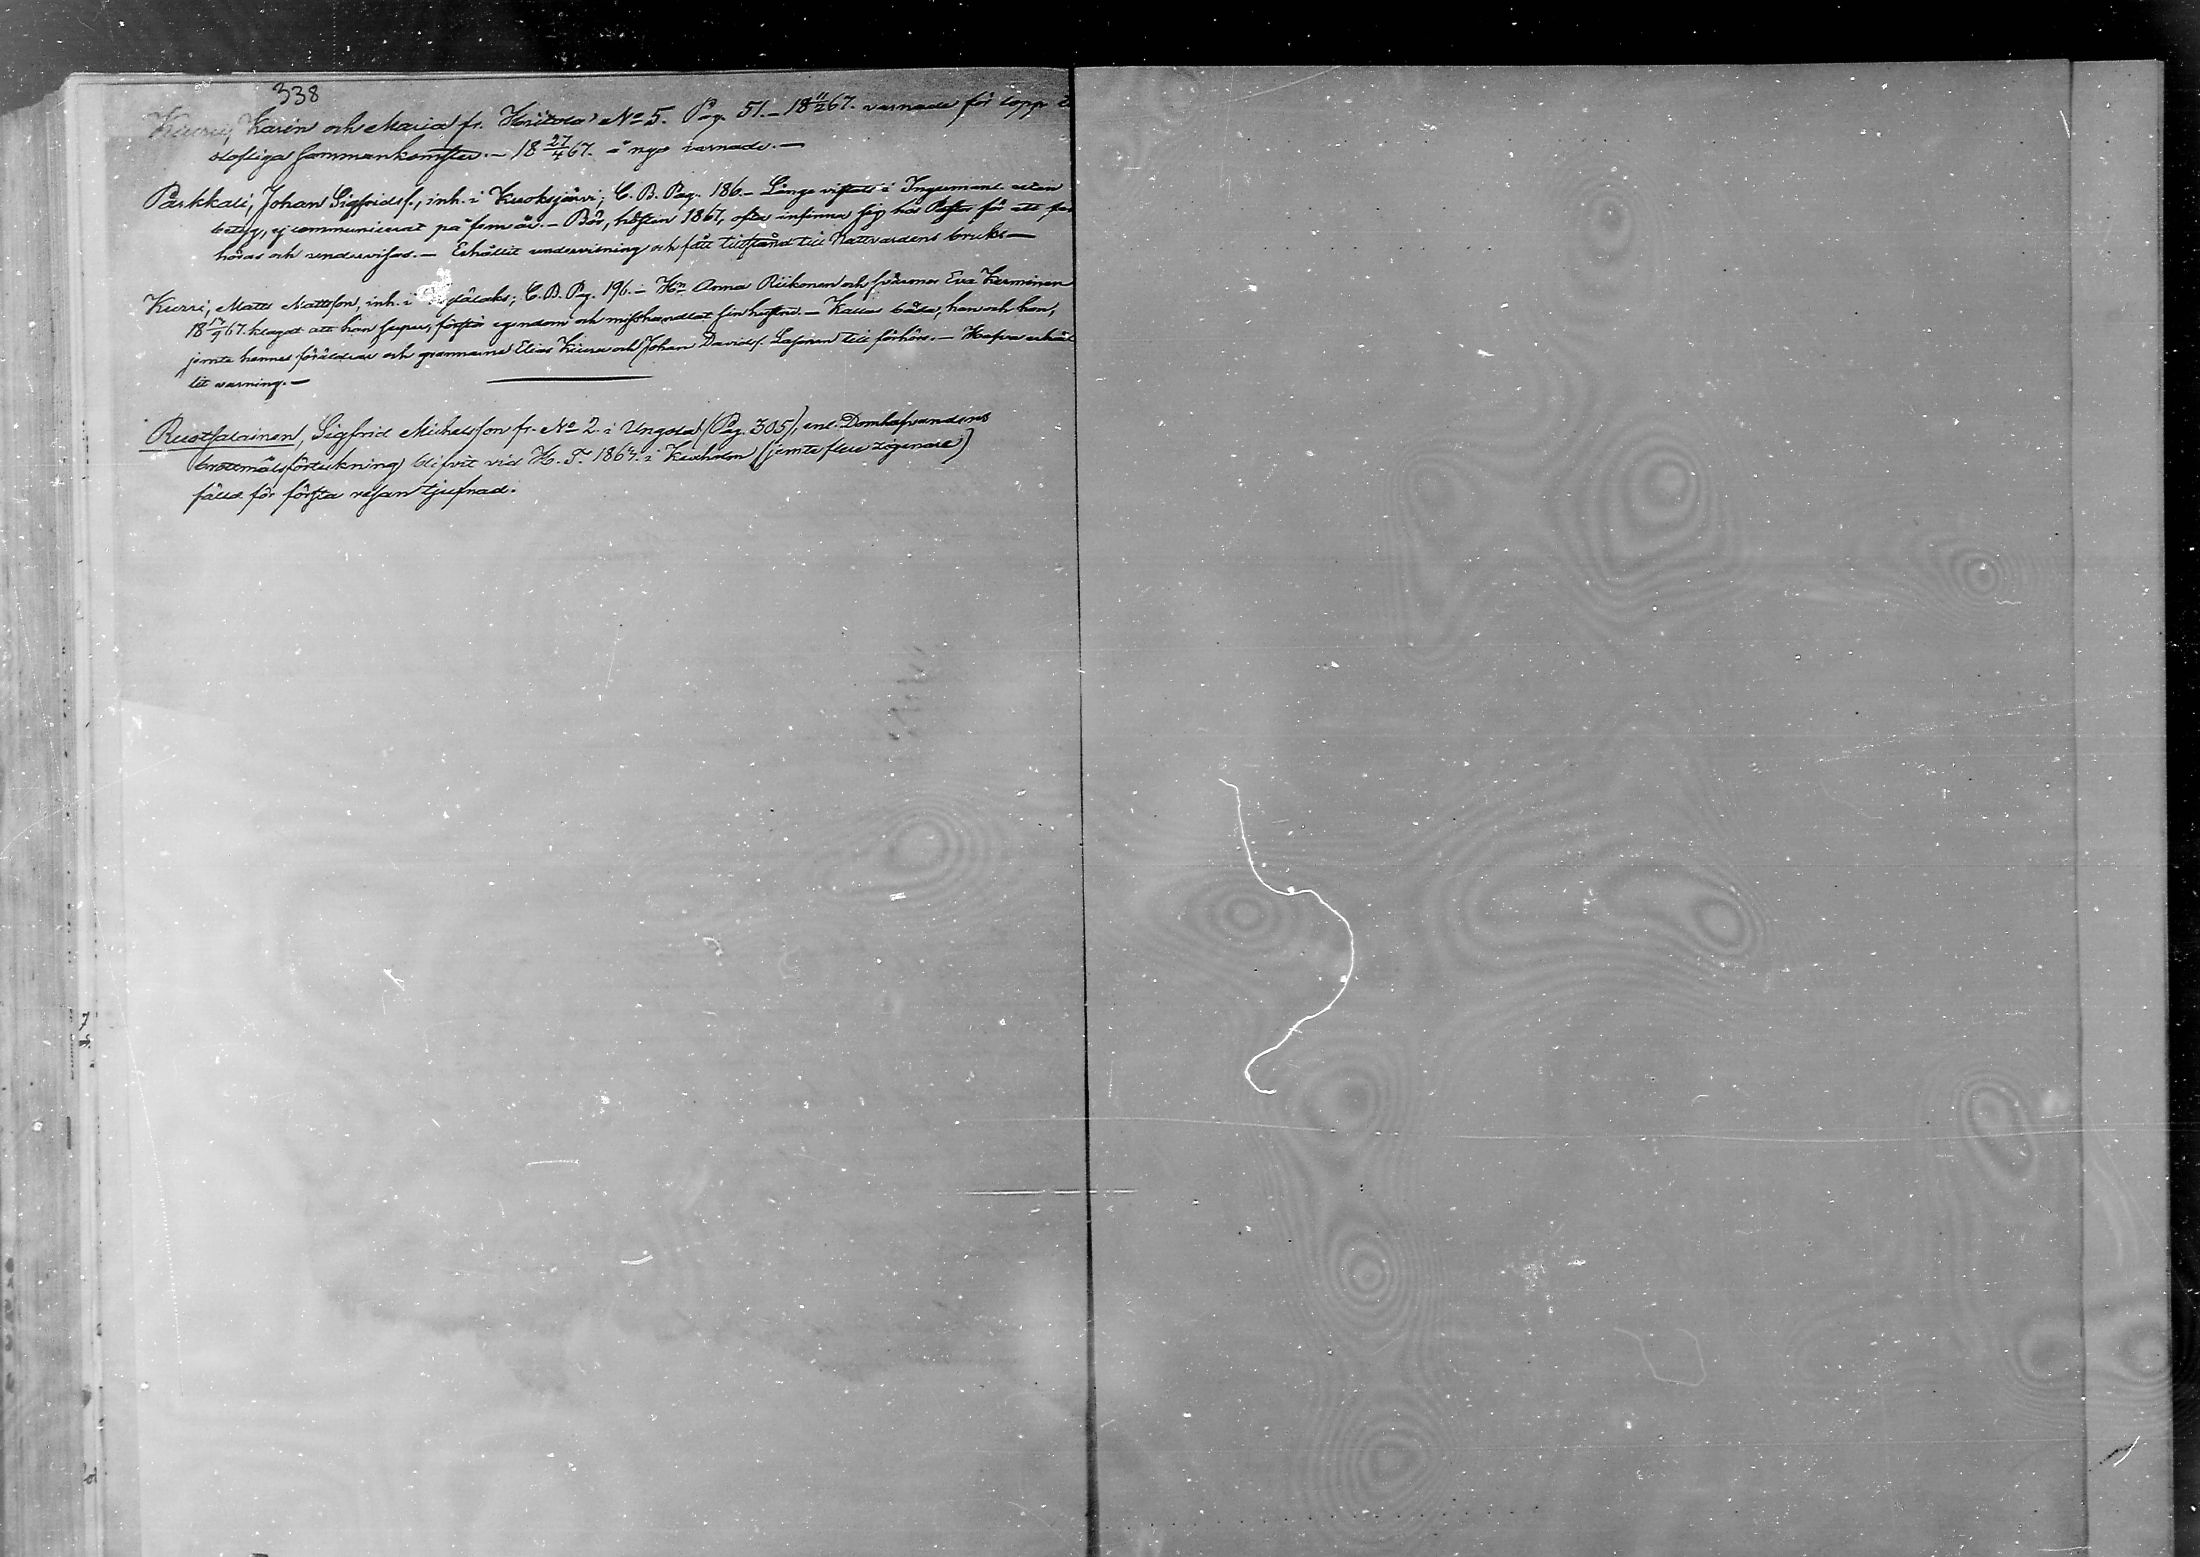 338
Kurri, Karin och Maria fr. Hiitola No 5. Pag. 51. – 18 11/2 67. varnade för lopp
slefliga sammankomster. – 18 27/4 67. å nyo varnade. –
Parkkali, Johan Sigfridss., inh. i Kuoksjärvi; C. B. Pag. 186. – Länge vistats i Ingermanl. utan
betyg, ej communicerat på fem år. – Bör, hösten 1867, ofta infinna sig hos Pastor för att för
höras och undervisas. – Erhållit undervisning och fått tillstånd till Nattvardens bruk. –
Kurri, Matts Mattsson, inh. i C. B. Pag. 196. – Hu Anna Riikonen och Eva Kerminen
18 17/9 67. klagat att han super, förstör egendom och misshandlat sin hustru. – Kallas båda, han och hon,
jemte hennes föräldrar och grannarne Elias Kiuru och Johan Davids. Lasonen till förhör. – Hafva erhål
lit varning. –
Ruotsalainen, Sigfrid Michelsson fr. No 2 i Ungola (Pag. 305), enl. Domhafvandens
brottmålsförtekning blifvit vid H. T. 1867. i Kexholm (jemte flere zigenare)
fälld för första resan tjufnad.